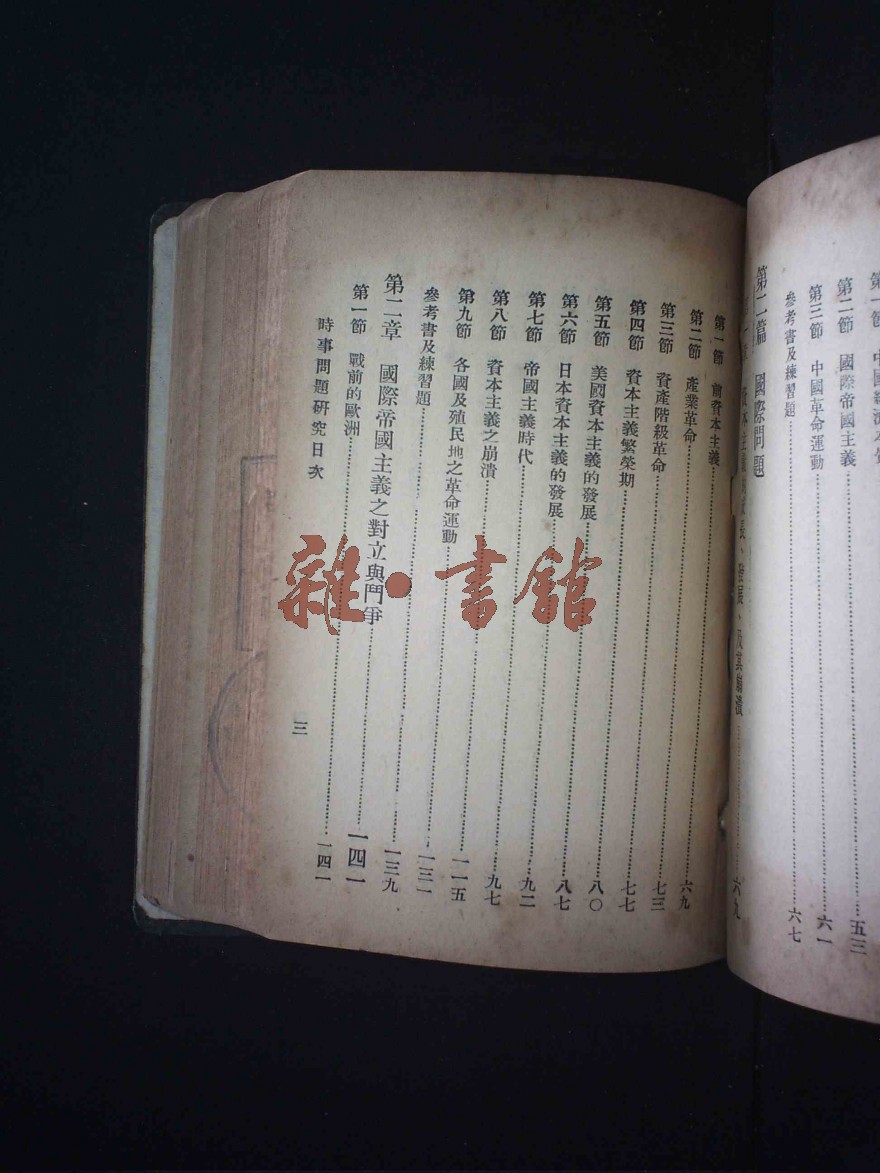 第二節 國際帝國主義……五三
第三節 中國革命運動……六一
參考書及練習題……六七
第二篇 國際問題
資本主義的成長、發展、及其崩潰……六九
第一節 前資本主義……六九
第二節 產業革命……七三
第三節 資產階級革命……七七
第四節 資本主義繁榮期……八〇
第五節 美國資本主義的發展……八七
第六節 日本資本主義的發展……九二
第七節 帝國主義時代……九七
第八節 資本主義之崩潰……一一五
第九節 各國及殖民地之革命運動……一三一
參考書及練習題……一三九
第二章 國際帝國主義之對立與鬥爭……一四一
第一節 戰前的歐洲……一四一
時事問題研究目次
三
雜·書館